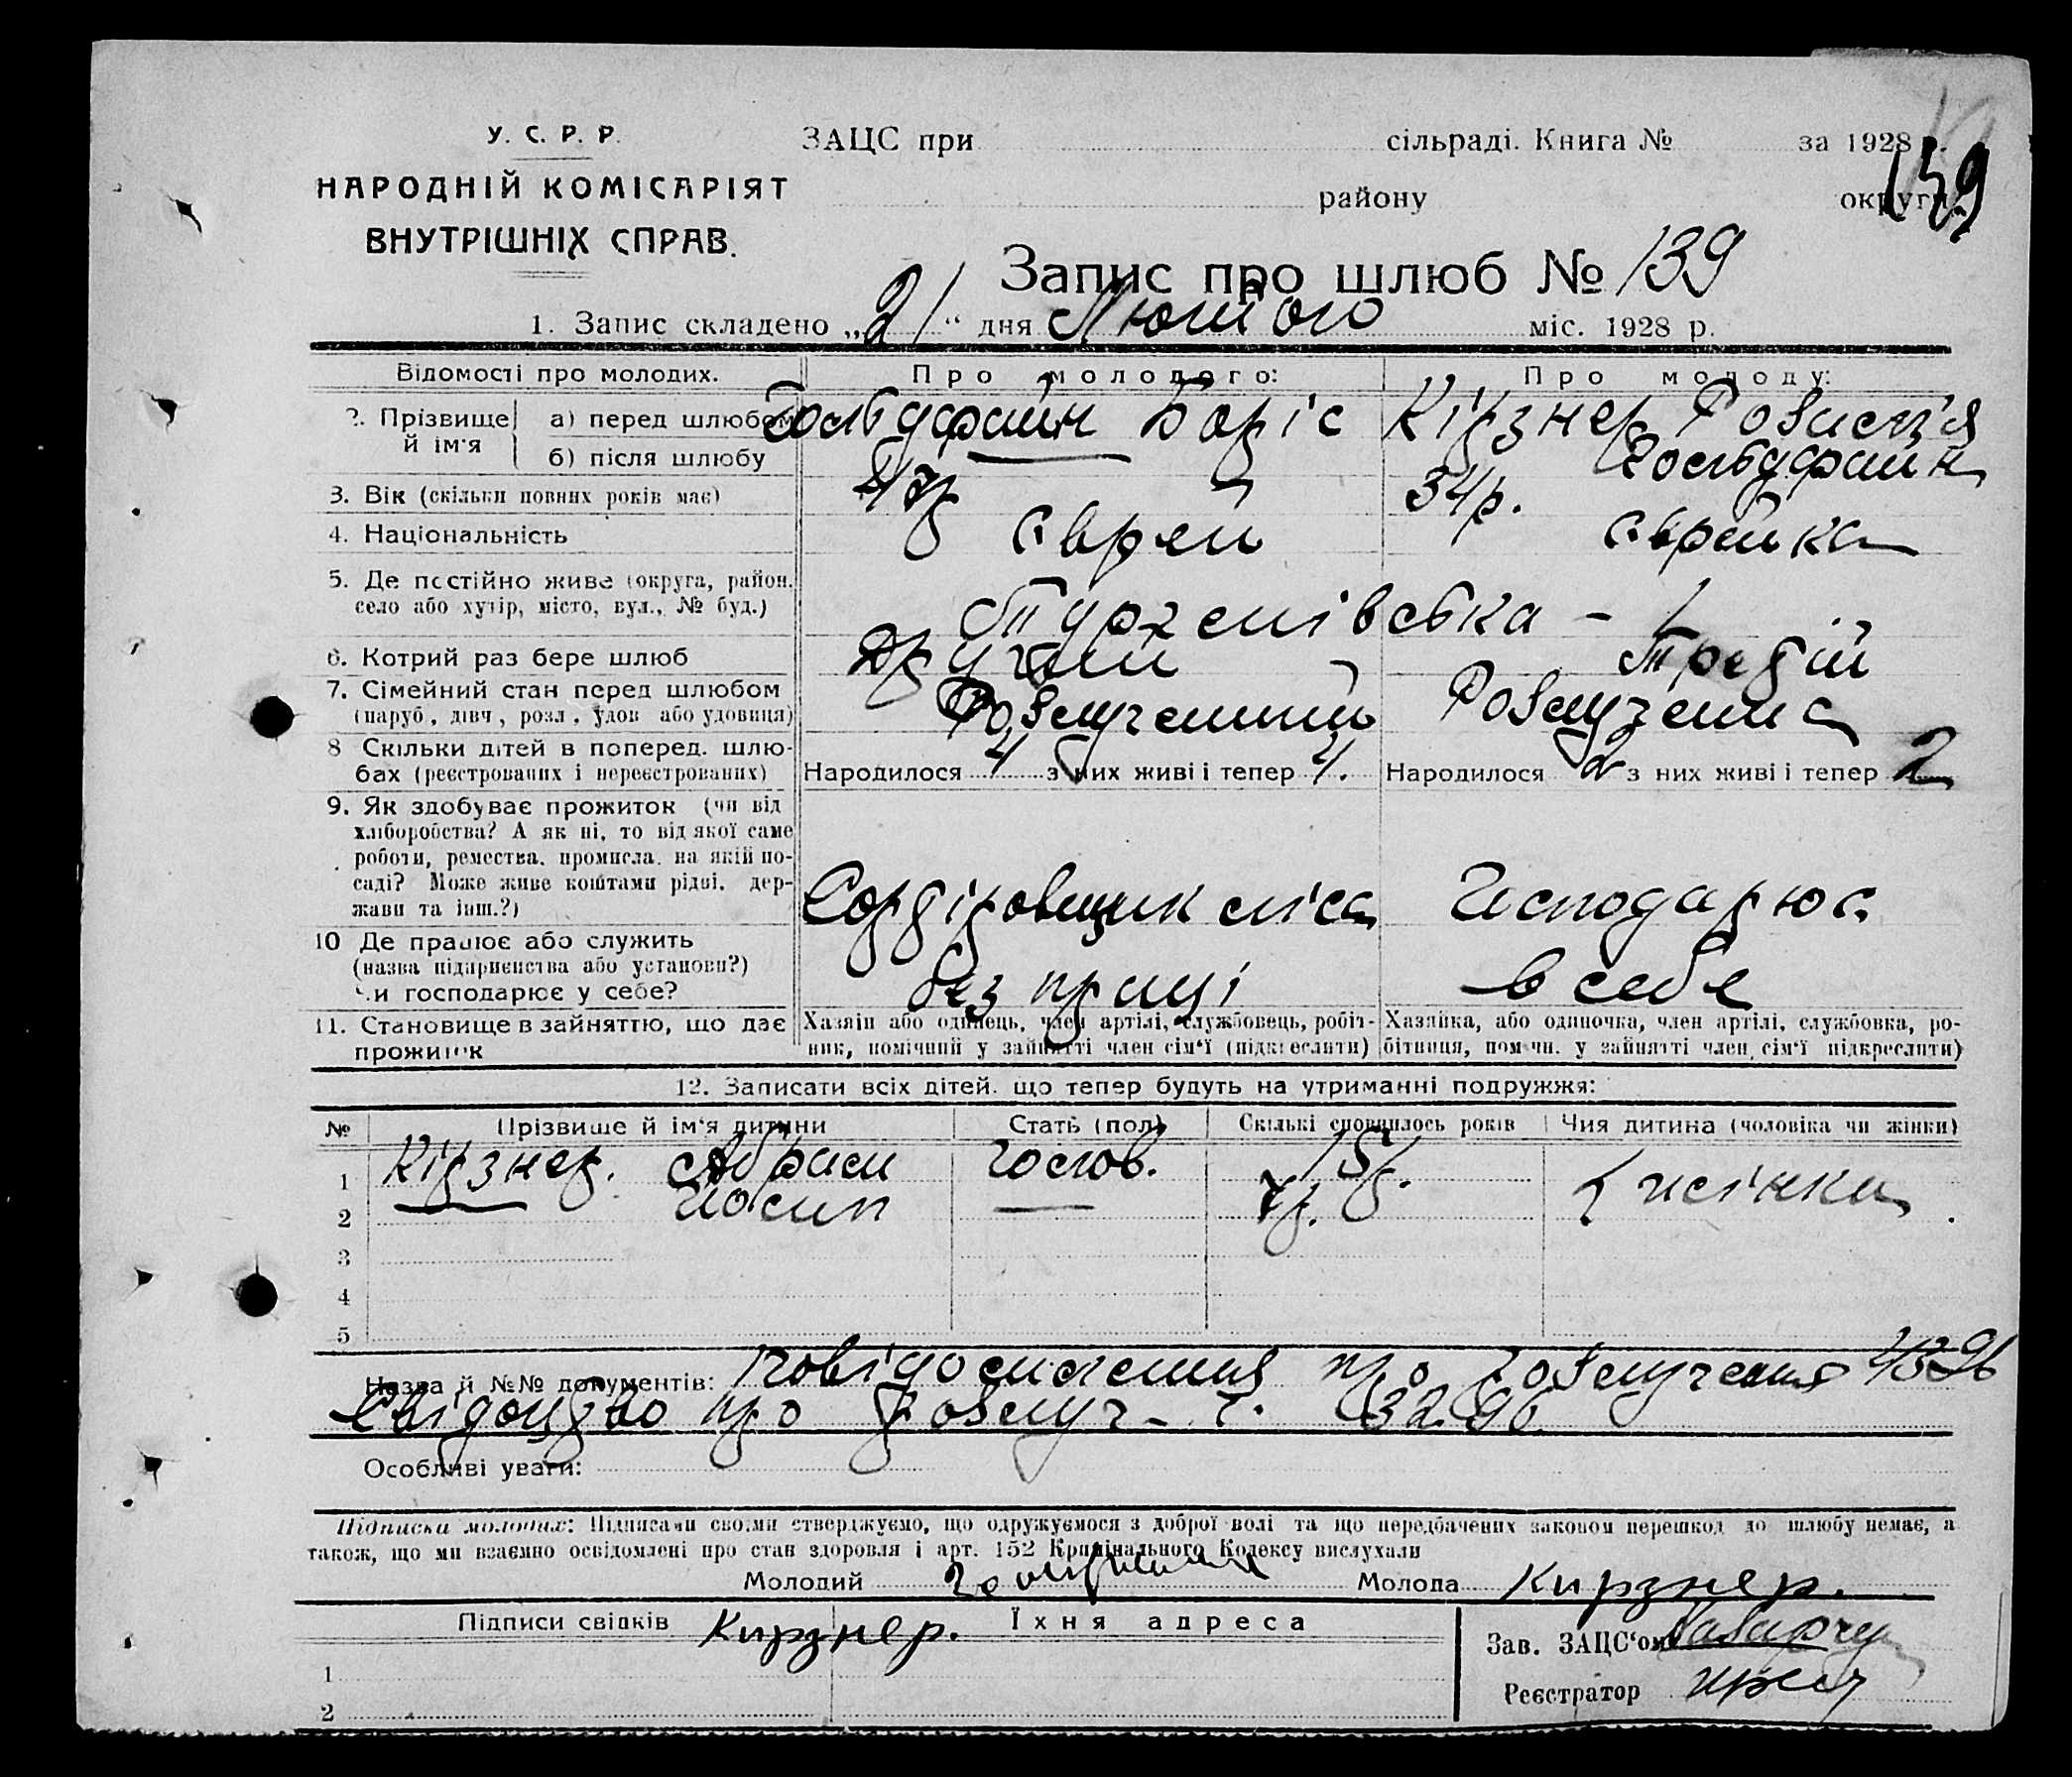 У. С. Р. Р.
НАРОДНІЙ КОМІСАРІЯТ
ВНУТРІШНІХ СПРАВ.
ЗАЦС при сільраді. Книга № за 1928
району округи
139
Запис про шлюб № 139
1. Запис складено „21“ дня Лютого міс. 1928 р.
Відомості про молодих. Про молодого: Про молоду:
2. Прізвище й ім'я а) перед шлюбом Гольдфайн Боріс Кірзнер Розалія
б) після шлюбу Гольдфайн
3. Вік (скільки повних років має) 47р 34р.
4. Національність Єврей Єврейка
5. Де постійно живе (округа, район,
село або хутір, місто, вул., № буд.) Тургенівська - 1
6. Котрий раз бере шлюб Другий Третій
7. Сімейний стан перед шлюбом
(паруб., дівч., розл., удов або удовиця) Розлучений Розлучена
8 Скільки дітей в поперед. шлю-
бах (реєстрованих і нереєстрованих) Народилося 4 з них живі і тепер 4. Народилося 2 з них живі і тепер 2
9. Як здобуває прожиток (чи від
хліборобства? А як ні, то від якої саме
роботи, ремества, промисла, на якій по-
саді? Може живе коштами рідні, дер-
жави та інш.?) Сордіровщик ліса Господарює
10 Де працює або служить
(назва підприємства або установи?)
Чи господарює у себе? без праці в себе
11. Становище в зайняттю, що дає
прожиток
Хазяїн або одинець, член артілі, службовець, робіт-
ник, помічний у зайнятті член сім'ї (підкреслити)
Хазяйка, або одиночка, член артілі, службовка, ро-
бітниця, помічн. у зайнятті член сім'ї підкреслити)
12. Записати всіх дітей, що тепер будуть на утриманні подружжя:
№ Прізвище й ім'я дитини Стать (пол) Скількі сповнилось років Чия дитина (чоловіка чи жінки)
1 Кірзнер. Абрам чолов. 15р. жінки
2 Йосип 7р.
3
4
5
Назва й №№ документів: Повідомлення про розлучення
Свідоцтво про розлуч.
Особливі уваги:
Підписи молодих: Підписами своїми стверджуємо, що одружуємося з доброї волі та що передбачених законом перешкод до шлюбу немає, а
також, що ми взаємно освідомлені про стан здоровля і арт. 152 Кримінального Кодексу вислухали
Молодий Молода Кирзнер.
Підписи свідків Кирзнер. Їхня адреса
Зав. ЗАЦС'ом
1
Реєстратор
2